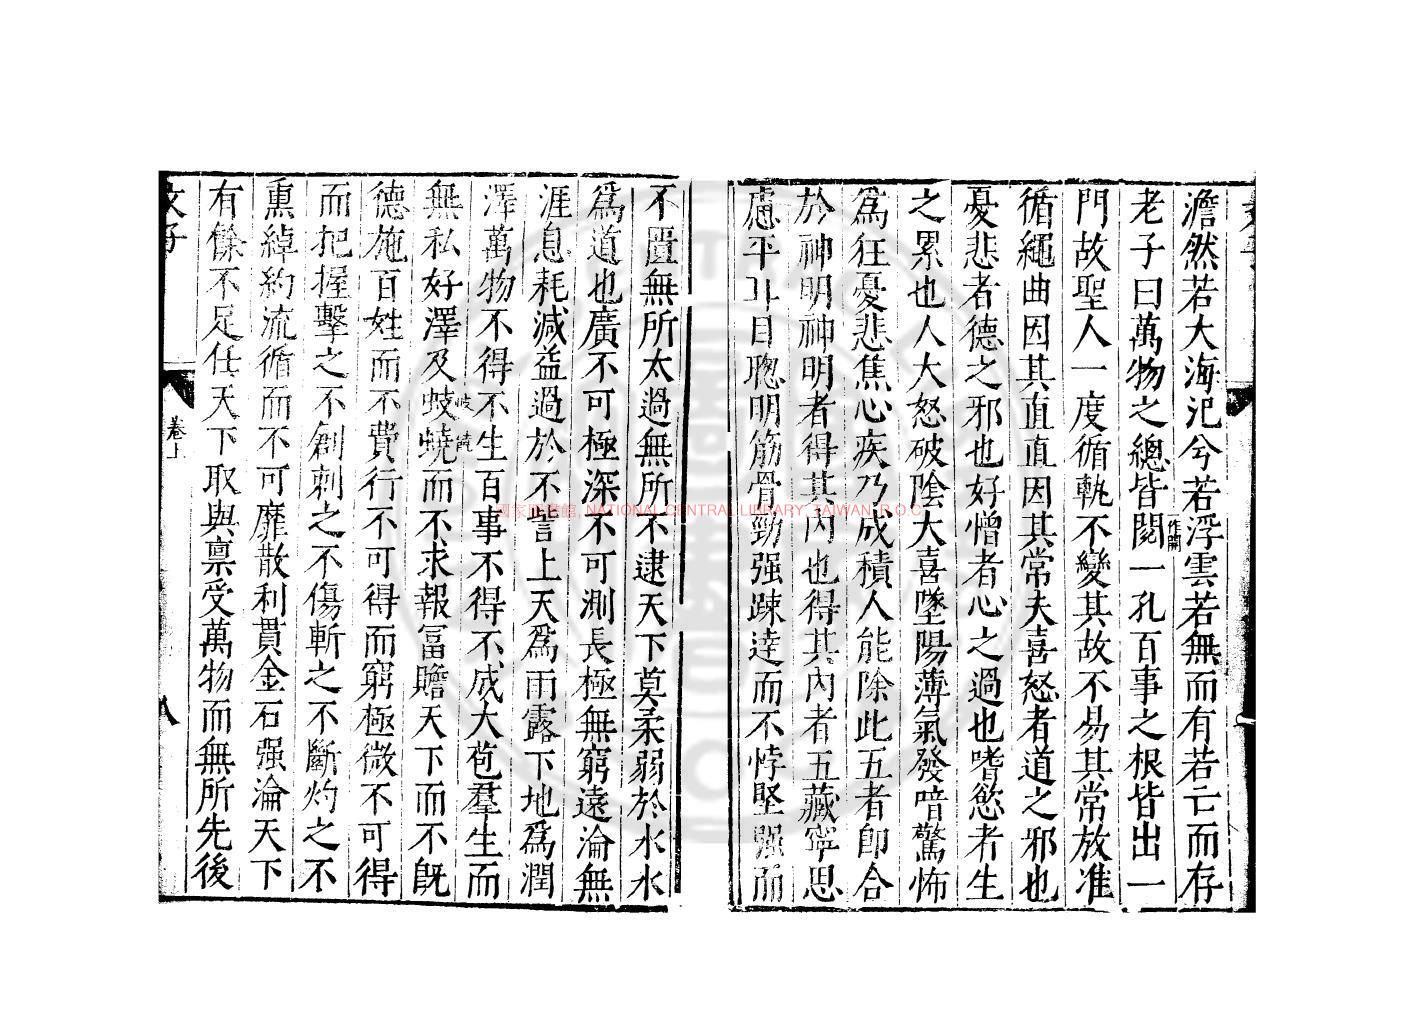 澹然若大海汜兮若浮雲若無而有若亡而存
老子曰萬物之總皆閱一作開一孔百事之根皆出一
門故聖人一度循軌不變其故不易其常放准
循繩曲因其直直因其常夫喜怒者道之邪也
憂悲者德之邪也好憎者心之過也嗜慾者生
之累也人大怒破陰大喜墜陽薄氣發喑驚怖
爲狂憂悲焦心疾乃成積人能除此五者即合
於神明神明者得其內也得其內者五藏寧思
慮平耳目聰明筋骨勁强踈達而不悖堅强而
不匱無所太過無所不逮天下莫柔弱於水水
爲道也廣不可極深不可測長極無窮遠淪無
涯息耗減益過於不訾上天爲雨露下地爲潤
澤萬物不得不生百事不得不成大苞羣生而
無私好澤及蚑岐蟯饒而不求報富贍天下而不旣
德施百姓而不費行不可得而窮極微不可得
而把握擊之不創刺之不傷斬之不斷灼之不
熏綽約流循而不可靡散利貫金石强淪天下
有餘不足任天下取與禀受萬物而無所先後
文子
卷上
八
國家圖書館, NATIONAL CENTRAL LIBRARY, TAIWAN, R.O.C